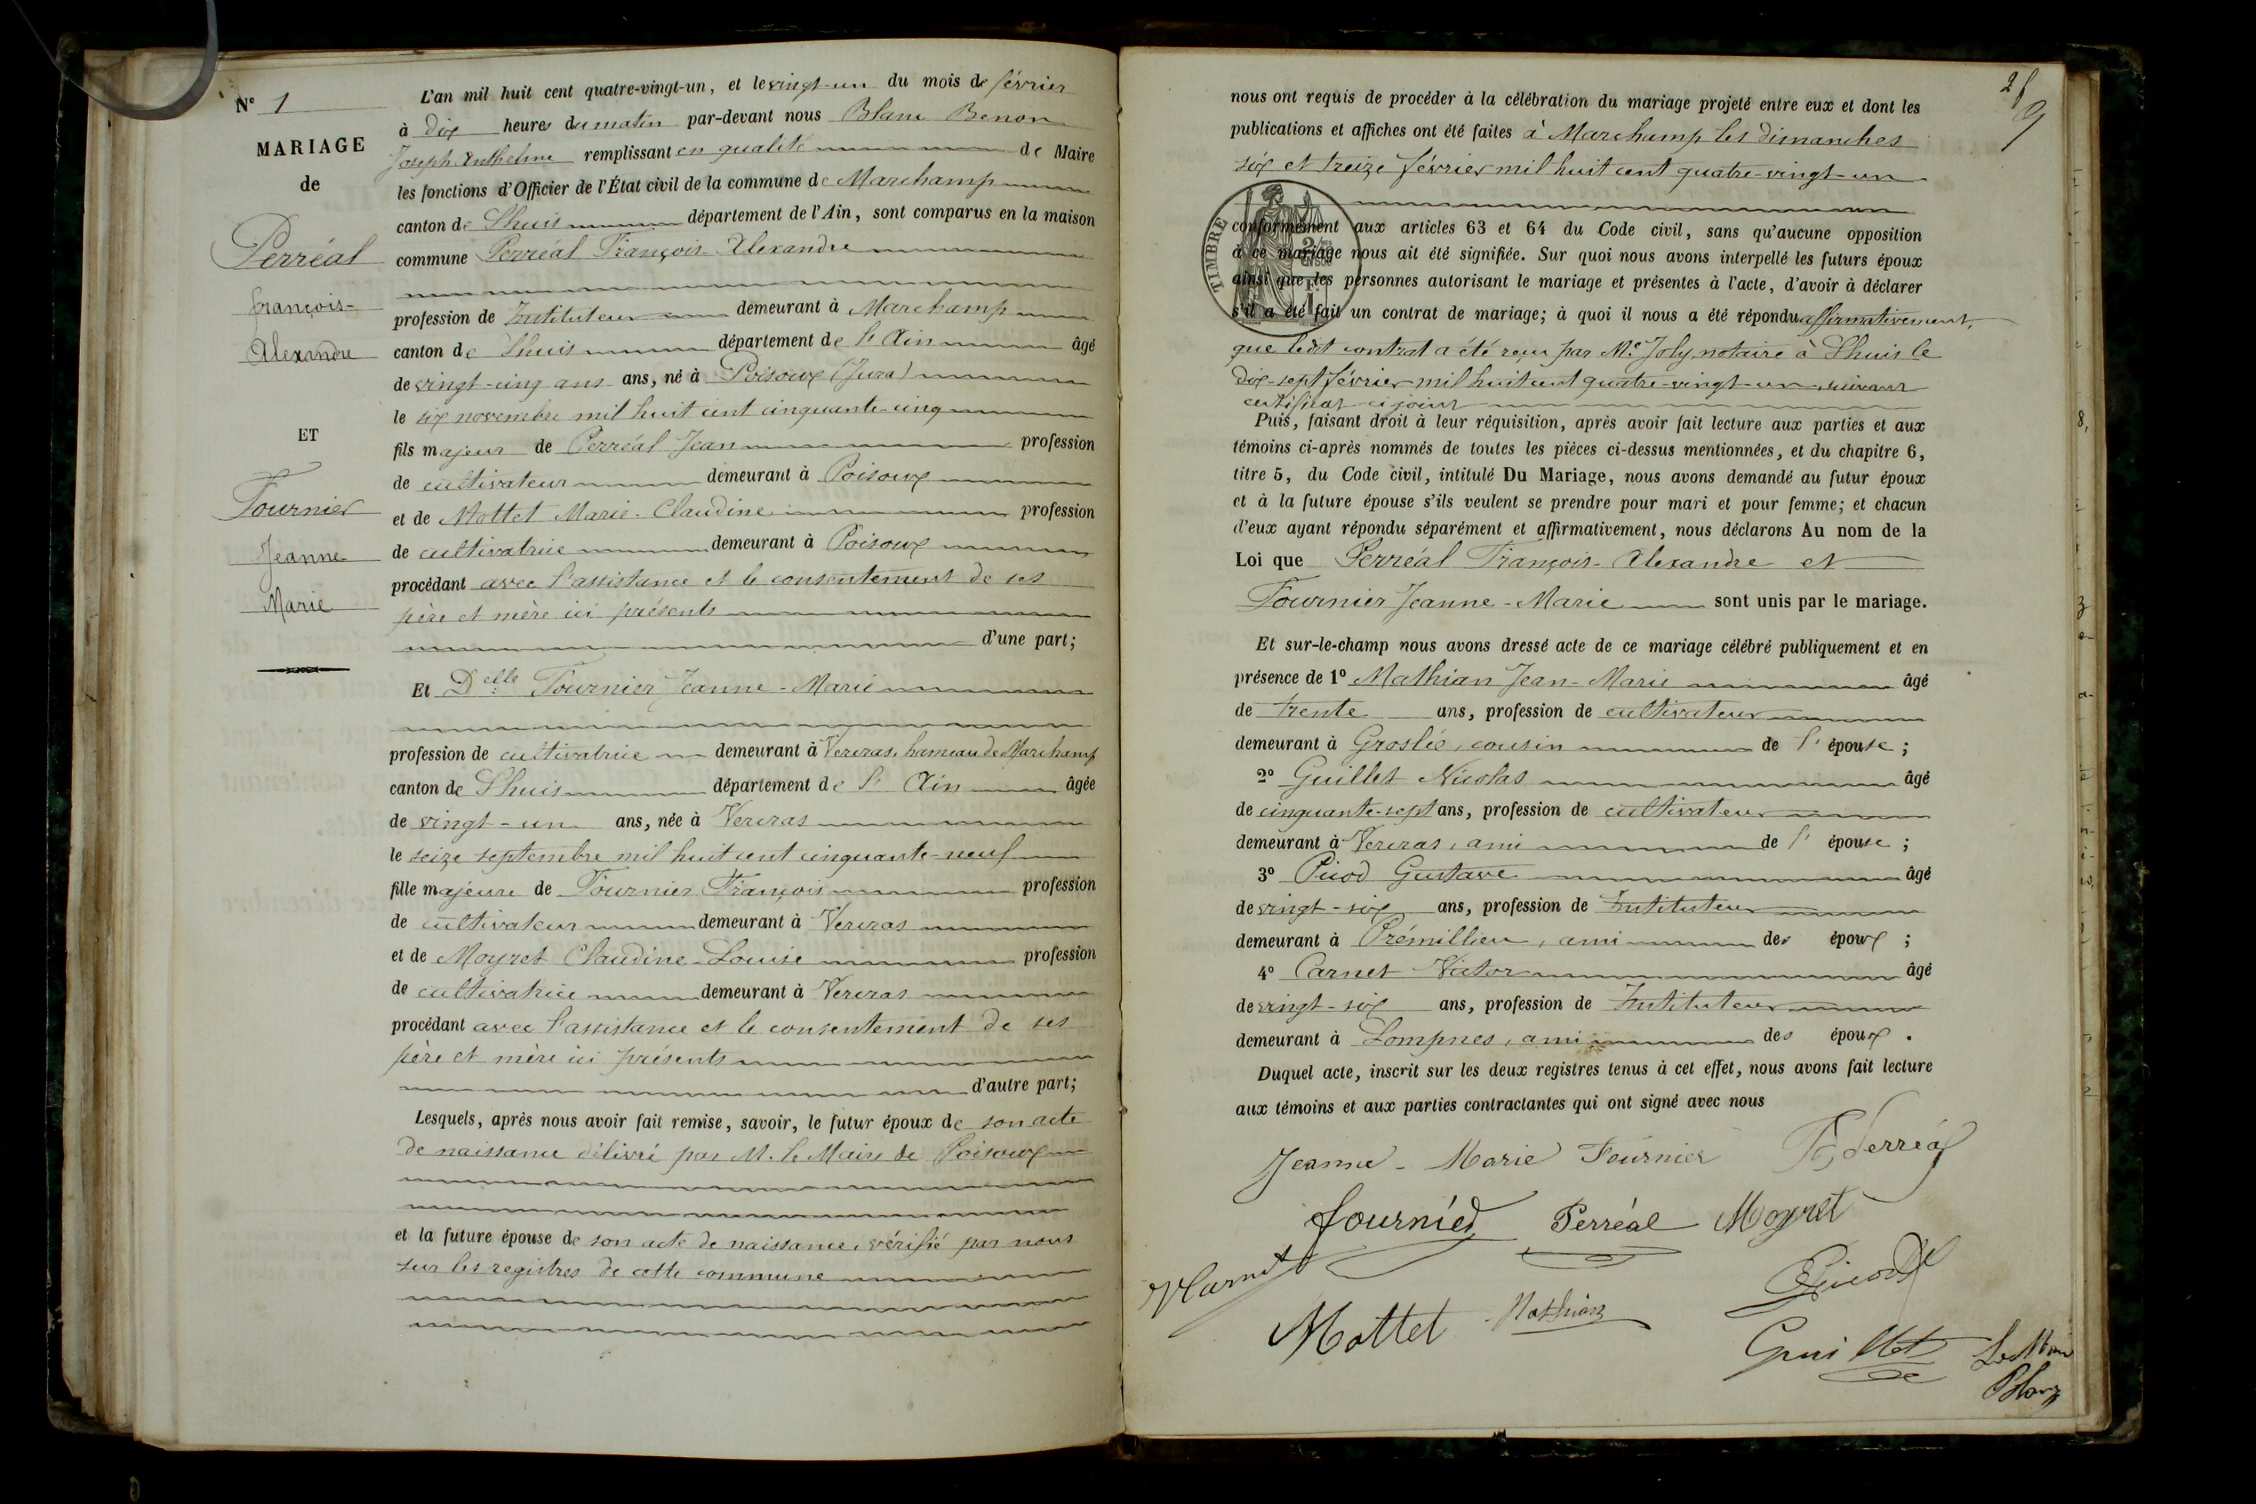 N° 1
MARIAGE
de
Perréal
françois-
Alexandre
ET
Fournier
Jeanne
Marie
L'an mil huit cent quatre-vingt-un, et le vingt-un du mois de février
à dix heures du matin par-devant nous Blanc Benon
Joseph Anthelme remplissant en qualité de Maire
les fonctions d'Officier de l'État civil de la commune de Marchamp
canton de Lhuis département de l'Ain, sont comparus en la maison
commune Perréal François-Alexandre
profession de Instituteur demeurant à Marchamp
canton de Lhuis département de l'Ain âgé
de vingt-cinq ans ans, né à Poisoux (Jura)
le six novembre mil huit cent cinquante-cinq
fils majeur de Perréal Jean profession
de cultivateur demeurant à Poisoux
et de Mottet Marie-Claudine profession
de cultivatrice demeurant à Poisoux
procédant avec l'assistance et le consentement de ses
père et mère ici présents
d'une part;
Et Delle Fournier Jeanne-Marie
profession de cultivatrice demeurant à Vereras, hameau de Marchamp
canton de Lhuis département de l'Ain âgée
de vingt-un ans, née à Vereras
le seize septembre mil huit cent cinquante-neuf
fille majeure de Fournier François profession
de cultivateur demeurant à Vereras
et de Moyret Claudine-Louise profession
de cultivatrice demeurant à Vereras
procédant avec l'assistance et le consentement de ses
père et mère ici présents
d'autre part;
Lesquels, après nous avoir fait remise, savoir, le futur époux de son acte
de naissance délivré par M. le Maire de Poisoux
et la future épouse de son acte de naissance, vérifié par nous
sur les registres de cette commune
nous ont requis de procéder à la célébration du mariage projeté entre eux et dont les
publications et affiches ont été faites à Marchamp les dimanches
six et treize février mil huit cent quatre-vingt-un
TIMBRE
conformément aux articles 63 et 64 du Code civil, sans qu'aucune opposition
à ce mariage nous ait été signifiée. Sur quoi nous avons interpellé les futurs époux
ainsi que les personnes autorisant le mariage et présentes à l'acte, d'avoir à déclarer
s'il a été fait un contrat de mariage; à quoi il nous a été répondu affirmativement,
que ledit contrat a été reçu par Me. Joly notaire à Lhuis le
dix-sept février mil huit cent quatre-vingt-un, suivant
certificat ci joint
Puis, faisant droit à leur réquisition, après avoir fait lecture aux parties et aux
témoins ci-après nommés de toutes les pièces ci-dessus mentionnées, et du chapitre 6,
titre 5, du Code civil, intitulé Du Mariage, nous avons demandé au futur époux
et à la future épouse s'ils veulent se prendre pour mari et pour femme; et chacun
d'eux ayant répondu séparément et affirmativement, nous déclarons Au nom de la
Loi que Perréal François-Alexandre et
Fournier Jeanne-Marie sont unis par le mariage.
Et sur-le-champ nous avons dressé acte de ce mariage célébré publiquement et en
présence de 1° Mathian Jean-Marie âgé
de trente ans, profession de cultivateur
demeurant à Groslée, cousin de l'épouse;
2° Guillet Nicolas âgé
de cinquante-sept ans, profession de cultivateur
demeurant à Vereras, ami de l'épouse;
3° Picod Gustave âgé
de vingt-six ans, profession de Instituteur
demeurant à Prémillieu, ami des époux;
4° Carnet Victor âgé
de vingt-six ans, profession de Instituteur
demeurant à Lompnes, ami des époux.
Duquel acte, inscrit sur les deux registres tenus à cet effet, nous avons fait lecture
aux témoins et aux parties contractantes qui ont signé avec nous
Jeanne-Marie Fournier Perréal
fournier Perréal Moyret
VCarnet Picod
Mottet Mathian
Guillet Le Maire
Blanc